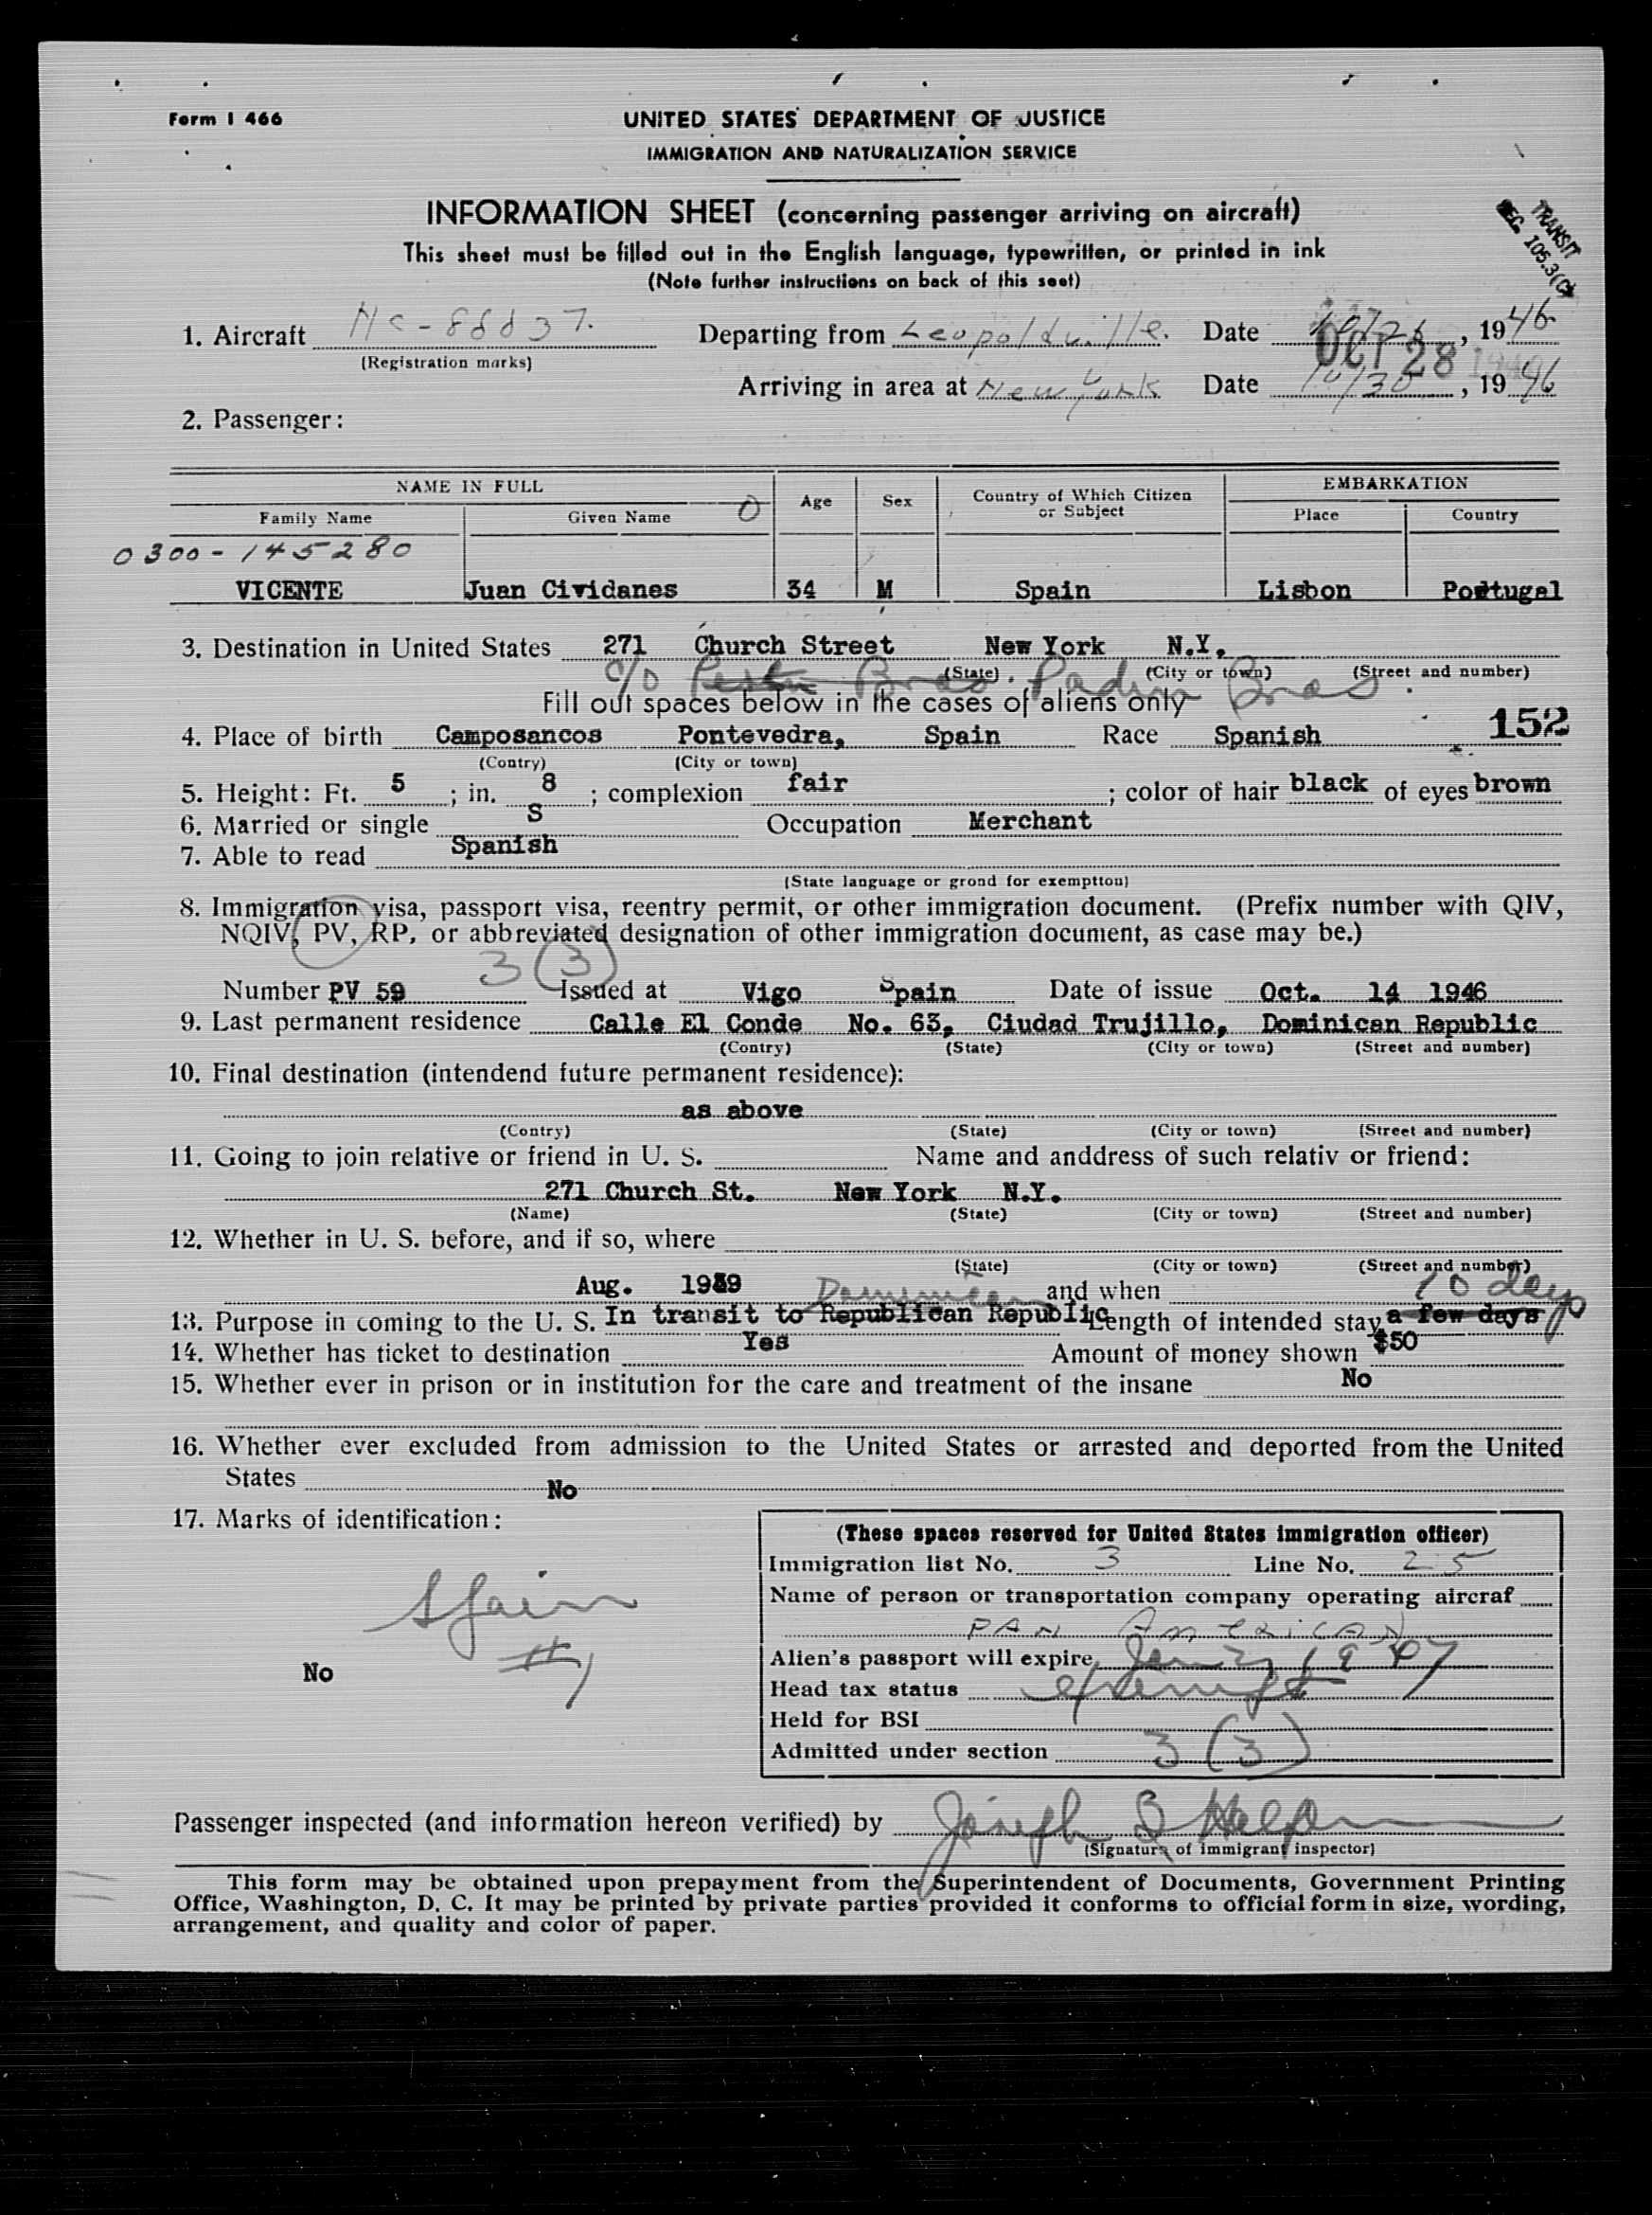 Form I 466
UNITED STATES DEPARTMENT OF JUSTICE
IMMIGRATION AND NATURALIZATION SERVICE
INFORMATION SHEET (concerning passenger arriving on aircraft)
This sheet must be filled out in the English language, typewritten, or printed in ink
(Note further instructions on back of this seet)
TRANSIT
SEC. 105.3(c)
1. Aircraft NC-88837. Departing from Leopoldville. Date , 1946
(Registration marks) OCT 28 1946
Arriving in area at New York Date 10/30, 1946
2. Passenger:
NAME IN FULL Age Sex Country of Which Citizen or Subject EMBARKATION
Family Name Given Name 0 Place Country
0300-145280
VICENTE Juan Cividanes 34 M Spain Lisbon Portugal
3. Destination in United States 271 Church Street New York N.Y.
(State) (City or town) (Street and number)
c/o Bros Padin Bros.
Fill out spaces below in the cases of aliens only
152
4. Place of birth Camposancos Pontevedra, Spain Race Spanish
(Contry) (City or town)
5. Height: Ft. 5 ; in. 8 ; complexion fair ; color of hair black of eyes brown
6. Married or single S Occupation Merchant
7. Able to read Spanish
(State language or grond for exempttou)
8. Immigration visa, passport visa, reentry permit, or other immigration document. (Prefix number with QIV,
NQIV, PV, RP, or abbreviated designation of other immigration document, as case may be.)
3(3)
Number PV 59 Issued at Vigo Spain Date of issue Oct. 14 1946
9. Last permanent residence Calle El Conde No. 63, Ciudad Trujillo, Dominican Republic
(Contry) (State) (City or town) (Street and number)
10. Final destination (intendend future permanent residence):
as above
(Contry) (State) (City or town) (Street and number)
11. Going to join relative or friend in U. S. Name and anddress of such relativ or friend:
271 Church St. New York N.Y.
(Name) (State) (City or town) (Street and number)
12. Whether in U. S. before, and if so, where
(State) (City or town) (Street and number)
Aug. 1939 Dominican and when 10 days
13. Purpose in coming to the U. S. In transit to Republican Republic Length of intended stay a few days
14. Whether has ticket to destination Yes Amount of money shown $50
15. Whether ever in prison or in institution for the care and treatment of the insane No
16. Whether ever excluded from admission to the United States or arrested and deported from the United
States No
17. Marks of identification:
Spain
#1
No
(These spaces reserved for United States immigration officer)
Immigration list No. 3 Line No. 25
Name of person or transportation company operating aircraf
PAN AMERICAN
Alien's passport will expire Jan 1947
Head tax status exempt
Held for BSI
Admitted under section 3(3)
Passenger inspected (and information hereon verified) by Joseph
(Signature of immigrant inspector)
This form may be obtained upon prepayment from the Superintendent of Documents, Government Printing
Office, Washington, D. C. It may be printed by private parties provided it conforms to official form in size, wording,
arrangement, and quality and color of paper.